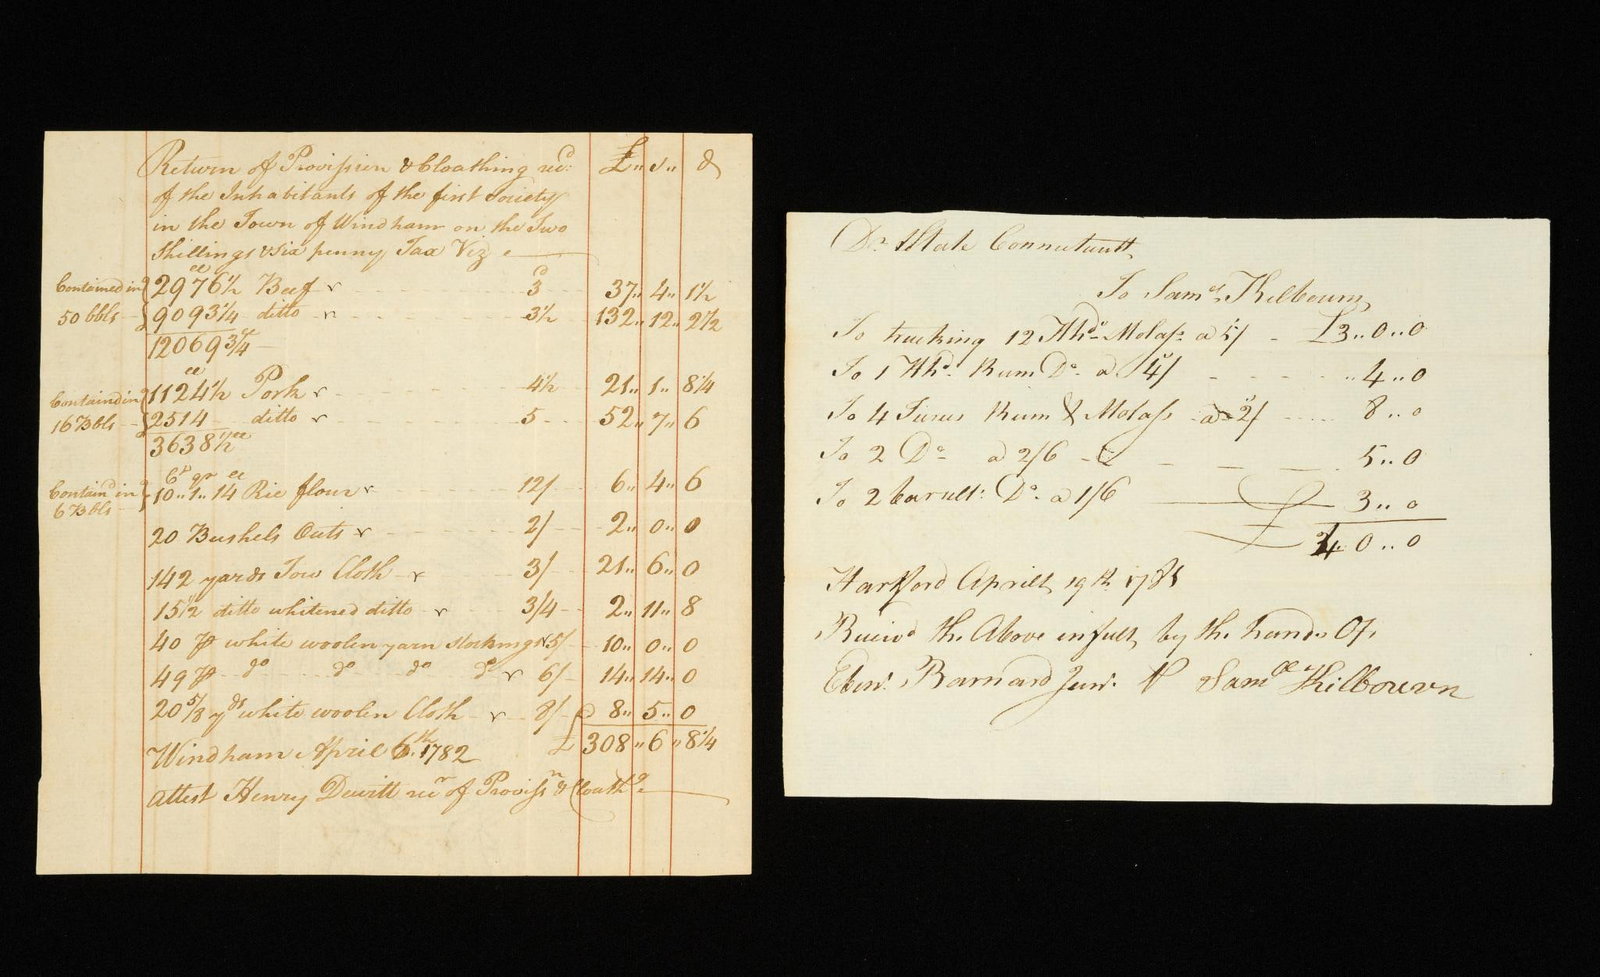 Return of Provission & Cloathing recd: £,, s,, d
of the Inhabitants of the first Society
in the Town of Windham on the Two
Shillings & Six penny Tax Viz
Contained in 2976½ Beef 3d 37,, 4,, 1½
50 bbls 9093¼ ditto 3½ 132,, 12,, 2½
12069¾
Contained in 1124½ Pork 4½ 21,, 1,, 8¼
16 Bbls 2514 ditto 5 52,, 7,, 6
3638½
Ct qr
Contain'd in 10,, 1,, 14 Rie flour 12/ 6,, 4,, 6
6 Bbls
20 Bushels Oats 2/ 2,, 0,, 0
142 yards Tow Cloth 3/ 21,, 6,, 0
15½ ditto whitened ditto 3/4 2,, 11,, 8
40 pr white woolen yarn stockings 5/ 10,, 0,, 0
49 pr do do do do 6/ 14,, 14,, 0
20 5/8 yds white woolen Cloth 8/ 8,, 5,, 0
£ 308,, 6,, 8¼
Windham April 6th. 1782
Attest Henry Dewitt recr of Provissn & Cloathg
Dr State Connecticutt
To Saml. Kilbourn
To trucking 12 Hhds Molass a 5/ £3,, 0,, 0
To 1 Hhd. Rum Do. a 4/ ,, 4,, 0
To 4 Turus Rum & Molass a 2/ 8,, 0
To 2 Do a 2/6 5,, 0
To 2 Do. a 1/6 3,, 0
4,, 0,, 0
Hartford Aprill 19th. 1781
Receivd the Above in full by the hands Of
Ebenr. Barnard Junr. P Samll Kilbourn